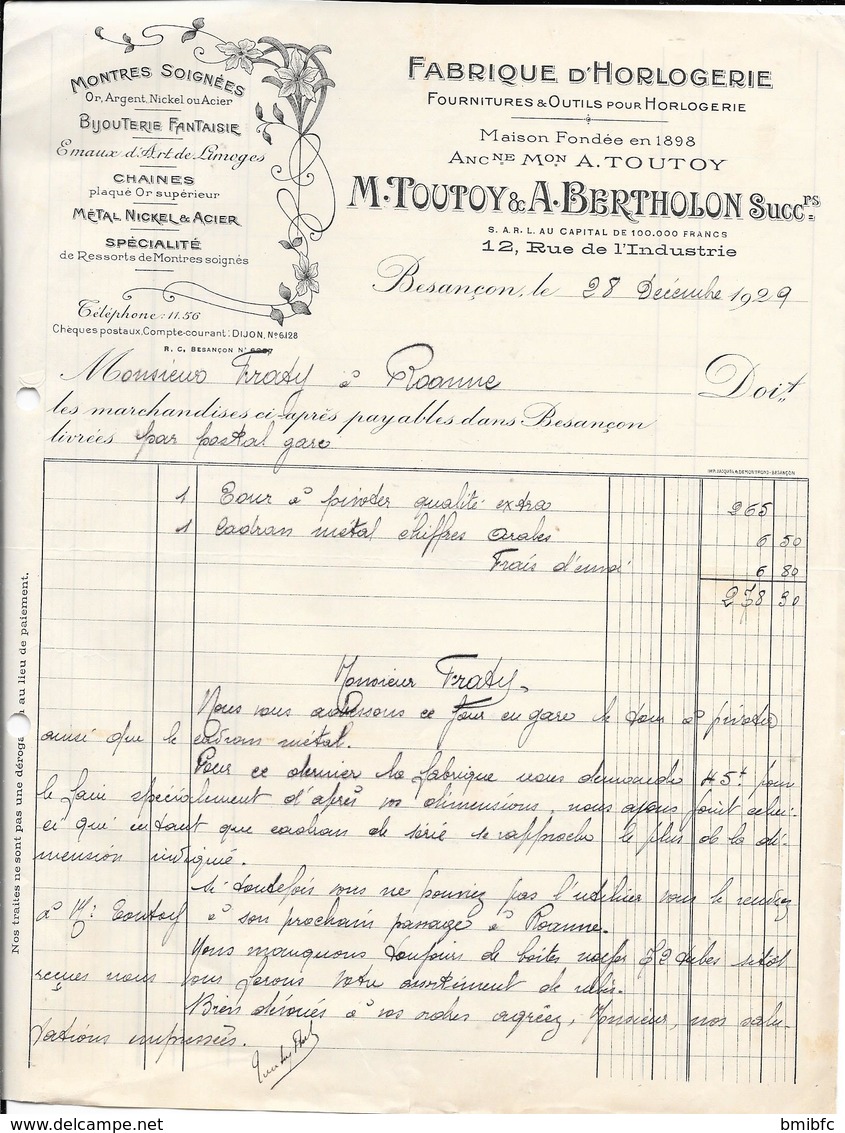 MONTRES SOIGNÉES
Or, Argent, Nickel ou Acier
BIJOUTERIE FANTAISIE
Emaux d'Art de Limoges
CHAINES
plaqué Or supérieur
MÉTAL NICKEL & ACIER
SPÉCIALITÉ
de Ressorts de Montres soignés
Téléphone : 11.56
Chèques postaux, Compte-courant : DIJON, No 6.128
R. C. BESANCON No
FABRIQUE D'HORLOGERIE
FOURNITURES & OUTILS POUR HORLOGERIE
Maison Fondée en 1898
ANCNE MON A. TOUTOY
M. TOUTOY & A. BERTHOLON SUCCRS
S. A. R. L. AU CAPITAL DE 100.000 FRANCS
12, Rue de l'Industrie
Besançon, le 28 Décembre 1929
Monsieur Fraty à Roanne Doit
les marchandises ci-après payables dans Besançon
livrées par postal gare
IMP. JACQUES & DEMONTROND - BESANÇON
1 Tour à pivoter qualité extra 265
1 Cadran métal chiffres arabes 6 50
Frais d'envoi 6 80
278 30
Monsieur Fraty,
Nous vous adressons ce jour en gare le tour à pivoter
ainsi que le cadran métal.
Pour ce dernier la fabrique nous demande 45f pour
le faire spécialement d'après vos dimensions, nous avons joint celui-
ci qui en tant que cadran de série se rapproche le plus de la di-
mension indiquée.
Si toutefois vous ne pouviez pas l'utiliser vous le rendrez
à Mr Toutoy à son prochain passage à Roanne.
Nous manquons toujours de boites 72 tubes sitôt
reçues nous vous ferons votre assortiment de
Bien dévoués à vos ordres agréez, Monsieur, nos salu-
tations empressées.
Nos traites ne sont pas une déroga n au lieu de paiement.
bmibfc